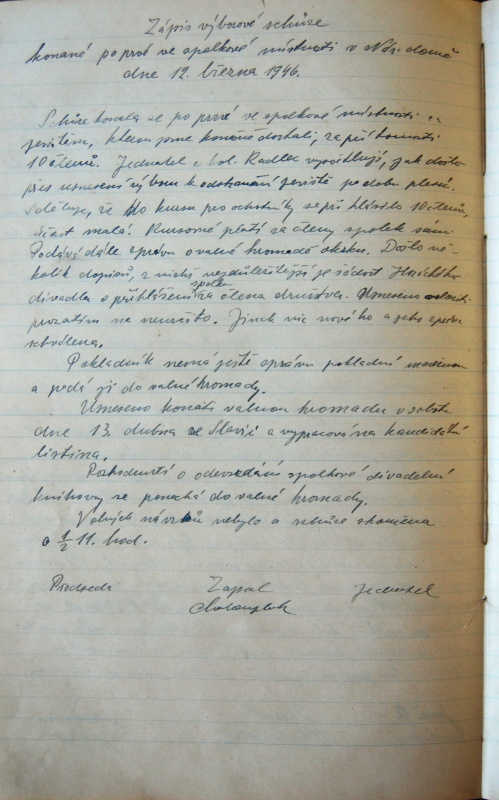 Zápis výborové schůze
konané po prvé ve spolkové místnosti v Nár. domě
dne 12. března 1946.
Schůze konala se po prvé ve spolkové místnosti s
jevištěm, kterou jsme konečně dostali, za přítomnosti
10 členů. Jednatel a kol. Radlec vysvětlují, jak došlo
přes usnesení výboru k odstranění jeviště po dobu plesů.
Sděluje, že do kursu pro ochotníky se při hlásilo 10 členů,
účast malá. Kursovné platí za členy spolek sám.
Podává dále zprávu o valné hromadě okrsku. Došlo ně-
kolik dopisů, z nichž nejdůležitější je žádost
divadla o přihlášení spolku za člena družstva. Usneseno
prozatím na neurčito. Jinak nic nového a jeho zpráva
schválena.
Pokladník nemá ještě zprávu pokladní
a podá ji do valné hromady.
Usneseno konati valnou hromadu v sobotu
dne 13. dubna ve Slavii a vypracována kandidátní
listina.
Rozhodnutí o odevzdání spolkové divadelní
knihovny se ponechá do valné hromady.
Volných návrhů nebylo a schůze skončena
o ½ 11. hod.
Předseda Zapsal Jednatel